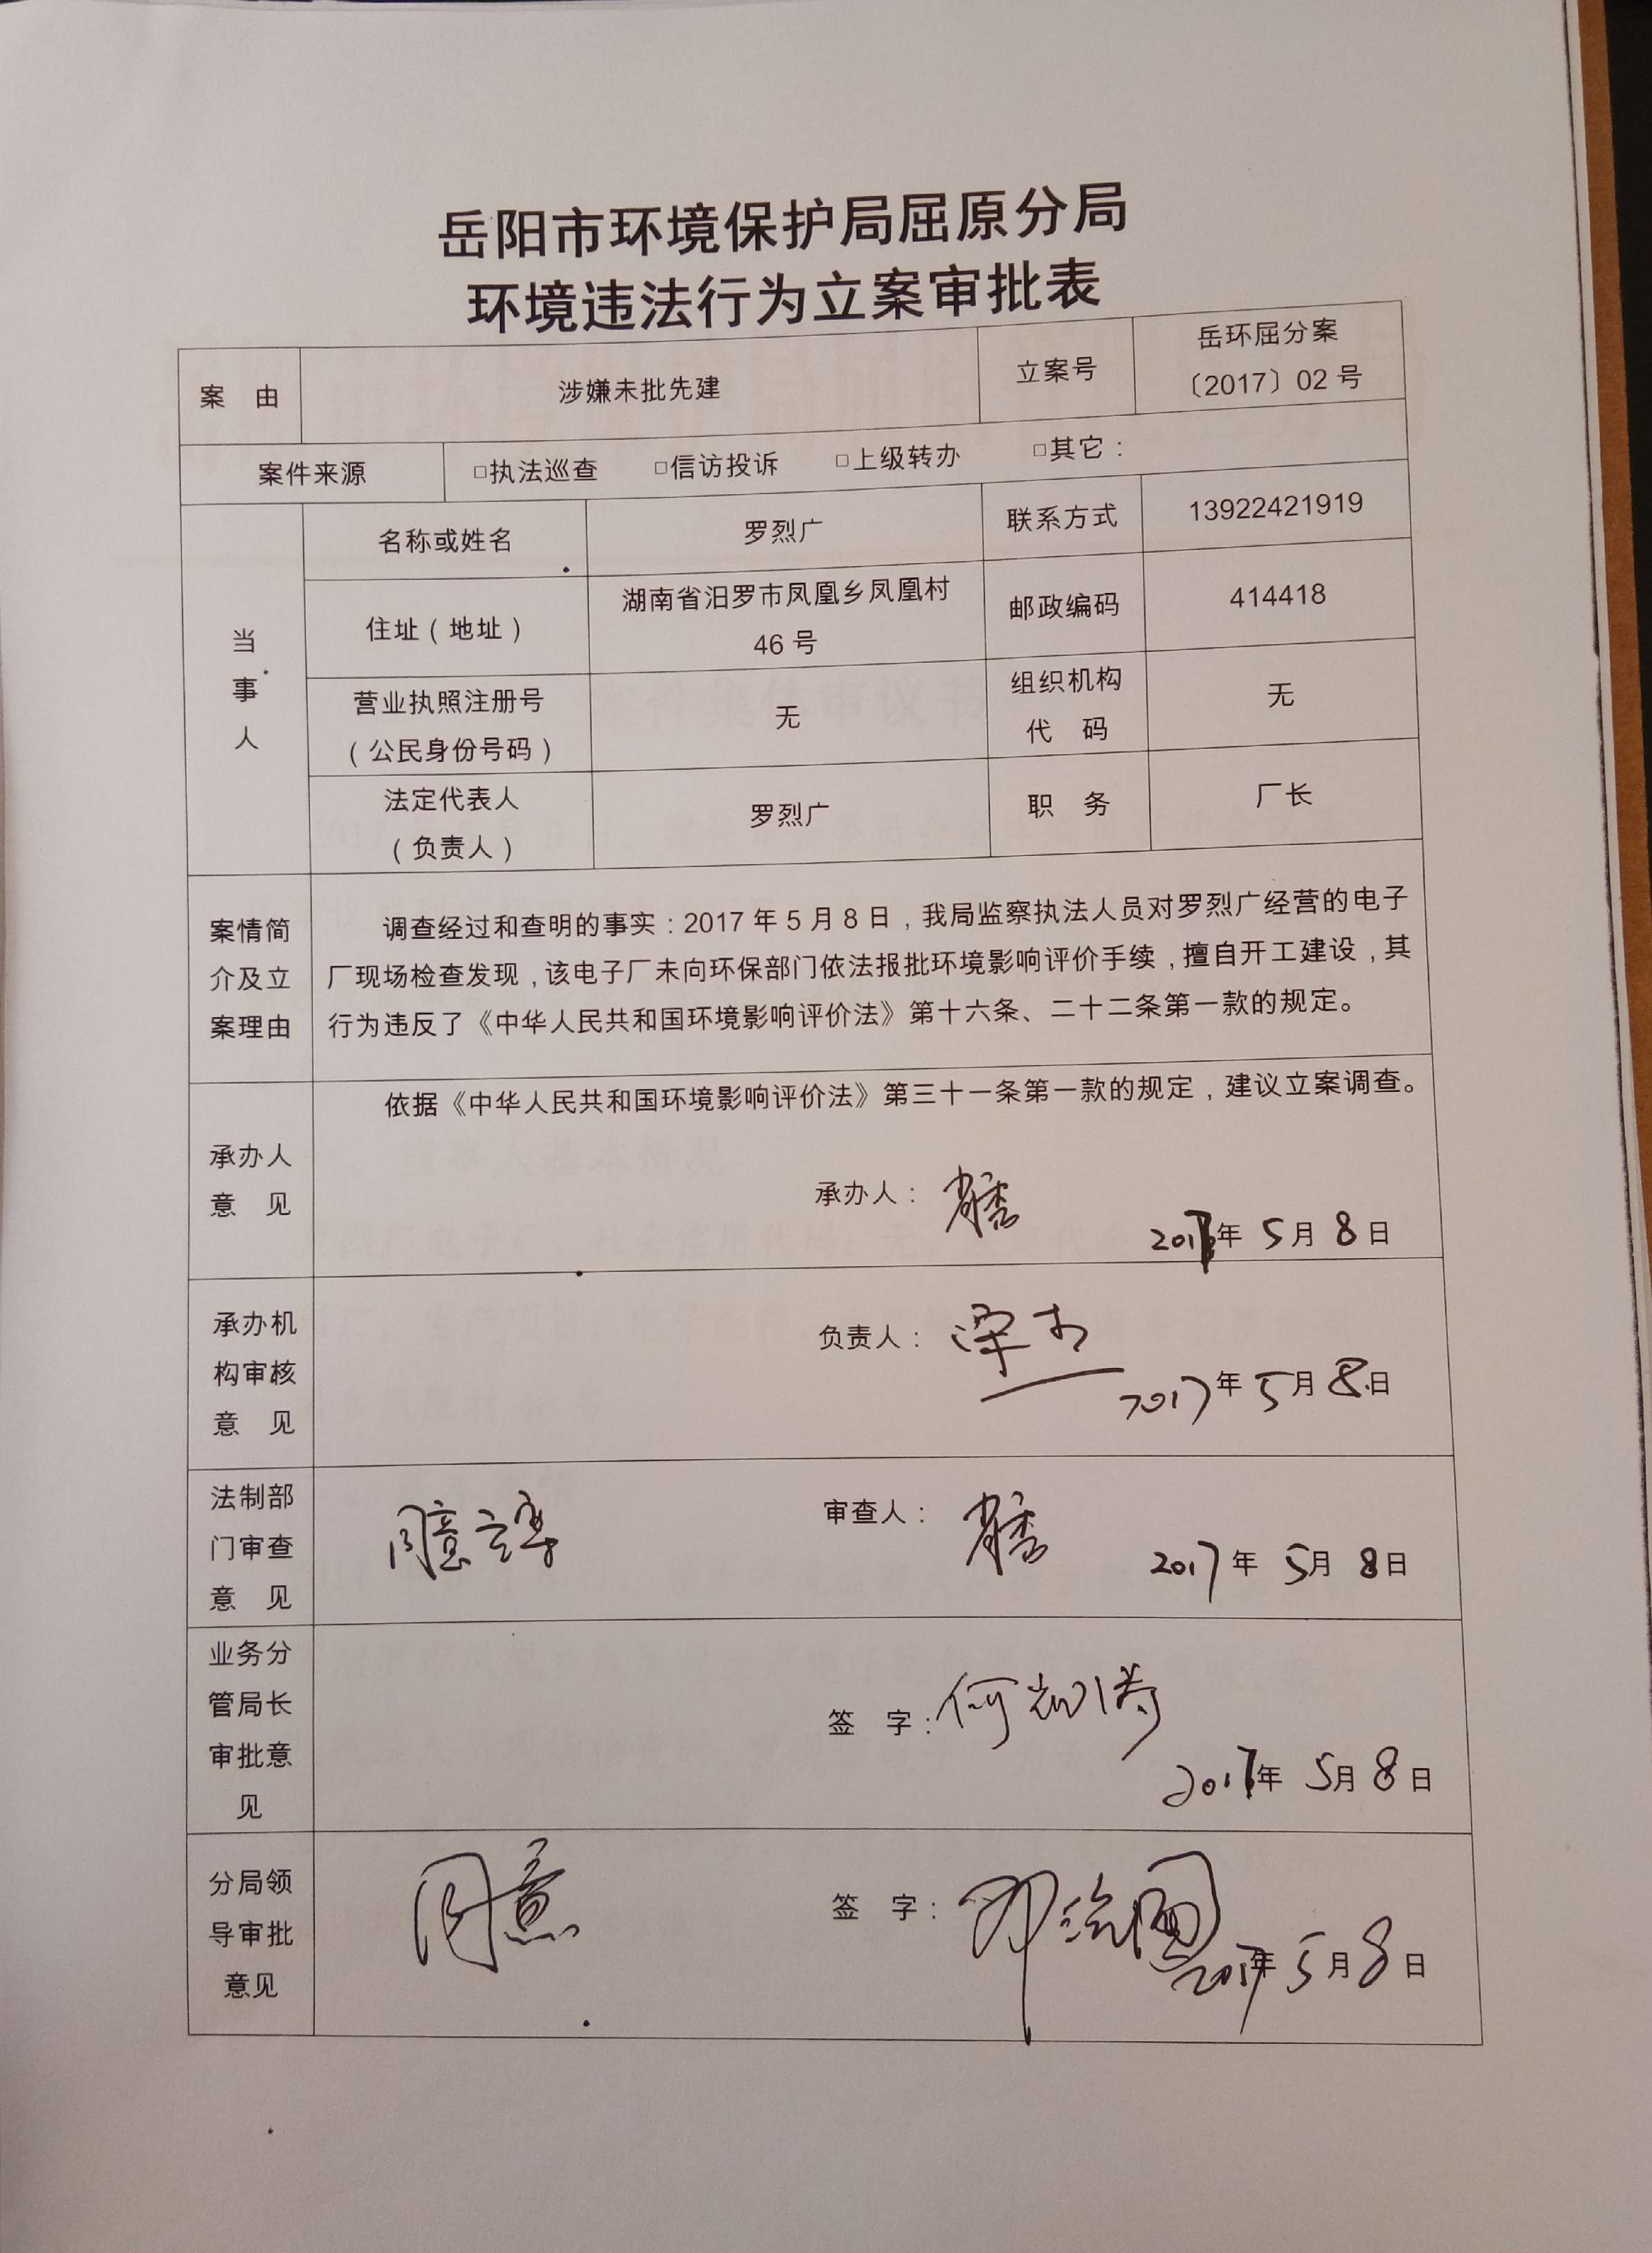 岳阳市环境保护局屈原分局
环境违法行为立案审批表
案 由
涉嫌未批先建
立案号
岳环屈分案
〔2017〕02 号
案件来源
□执法巡查 □信访投诉 □上级转办 □其它：
当
事
人
名称或姓名
罗烈广
联系方式
13922421919
住址（地址）
湖南省汨罗市凤凰乡凤凰村
46 号
邮政编码
414418
营业执照注册号
（公民身份号码）
无
组织机构
代 码
无
法定代表人
（负责人）
罗烈广
职 务
厂长
案情简
介及立
案理由
调查经过和查明的事实：2017 年 5 月 8 日，我局监察执法人员对罗烈广经营的电子
厂现场检查发现，该电子厂未向环保部门依法报批环境影响评价手续，擅自开工建设，其
行为违反了《中华人民共和国环境影响评价法》第十六条、二十二条第一款的规定。
承办人
意 见
依据《中华人民共和国环境影响评价法》第三十一条第一款的规定，建议立案调查。
承办人：
2017年 5月 8日
承办机
构审核
意 见
负责人：
2017年 5月 8日
法制部
门审查
意 见
同意立案
审查人：
2017年 5月 8日
业务分
管局长
审批意
见
签 字：
2017年 5月 8日
分局领
导审批
意见
同意
签 字：
2017年 5月 8日